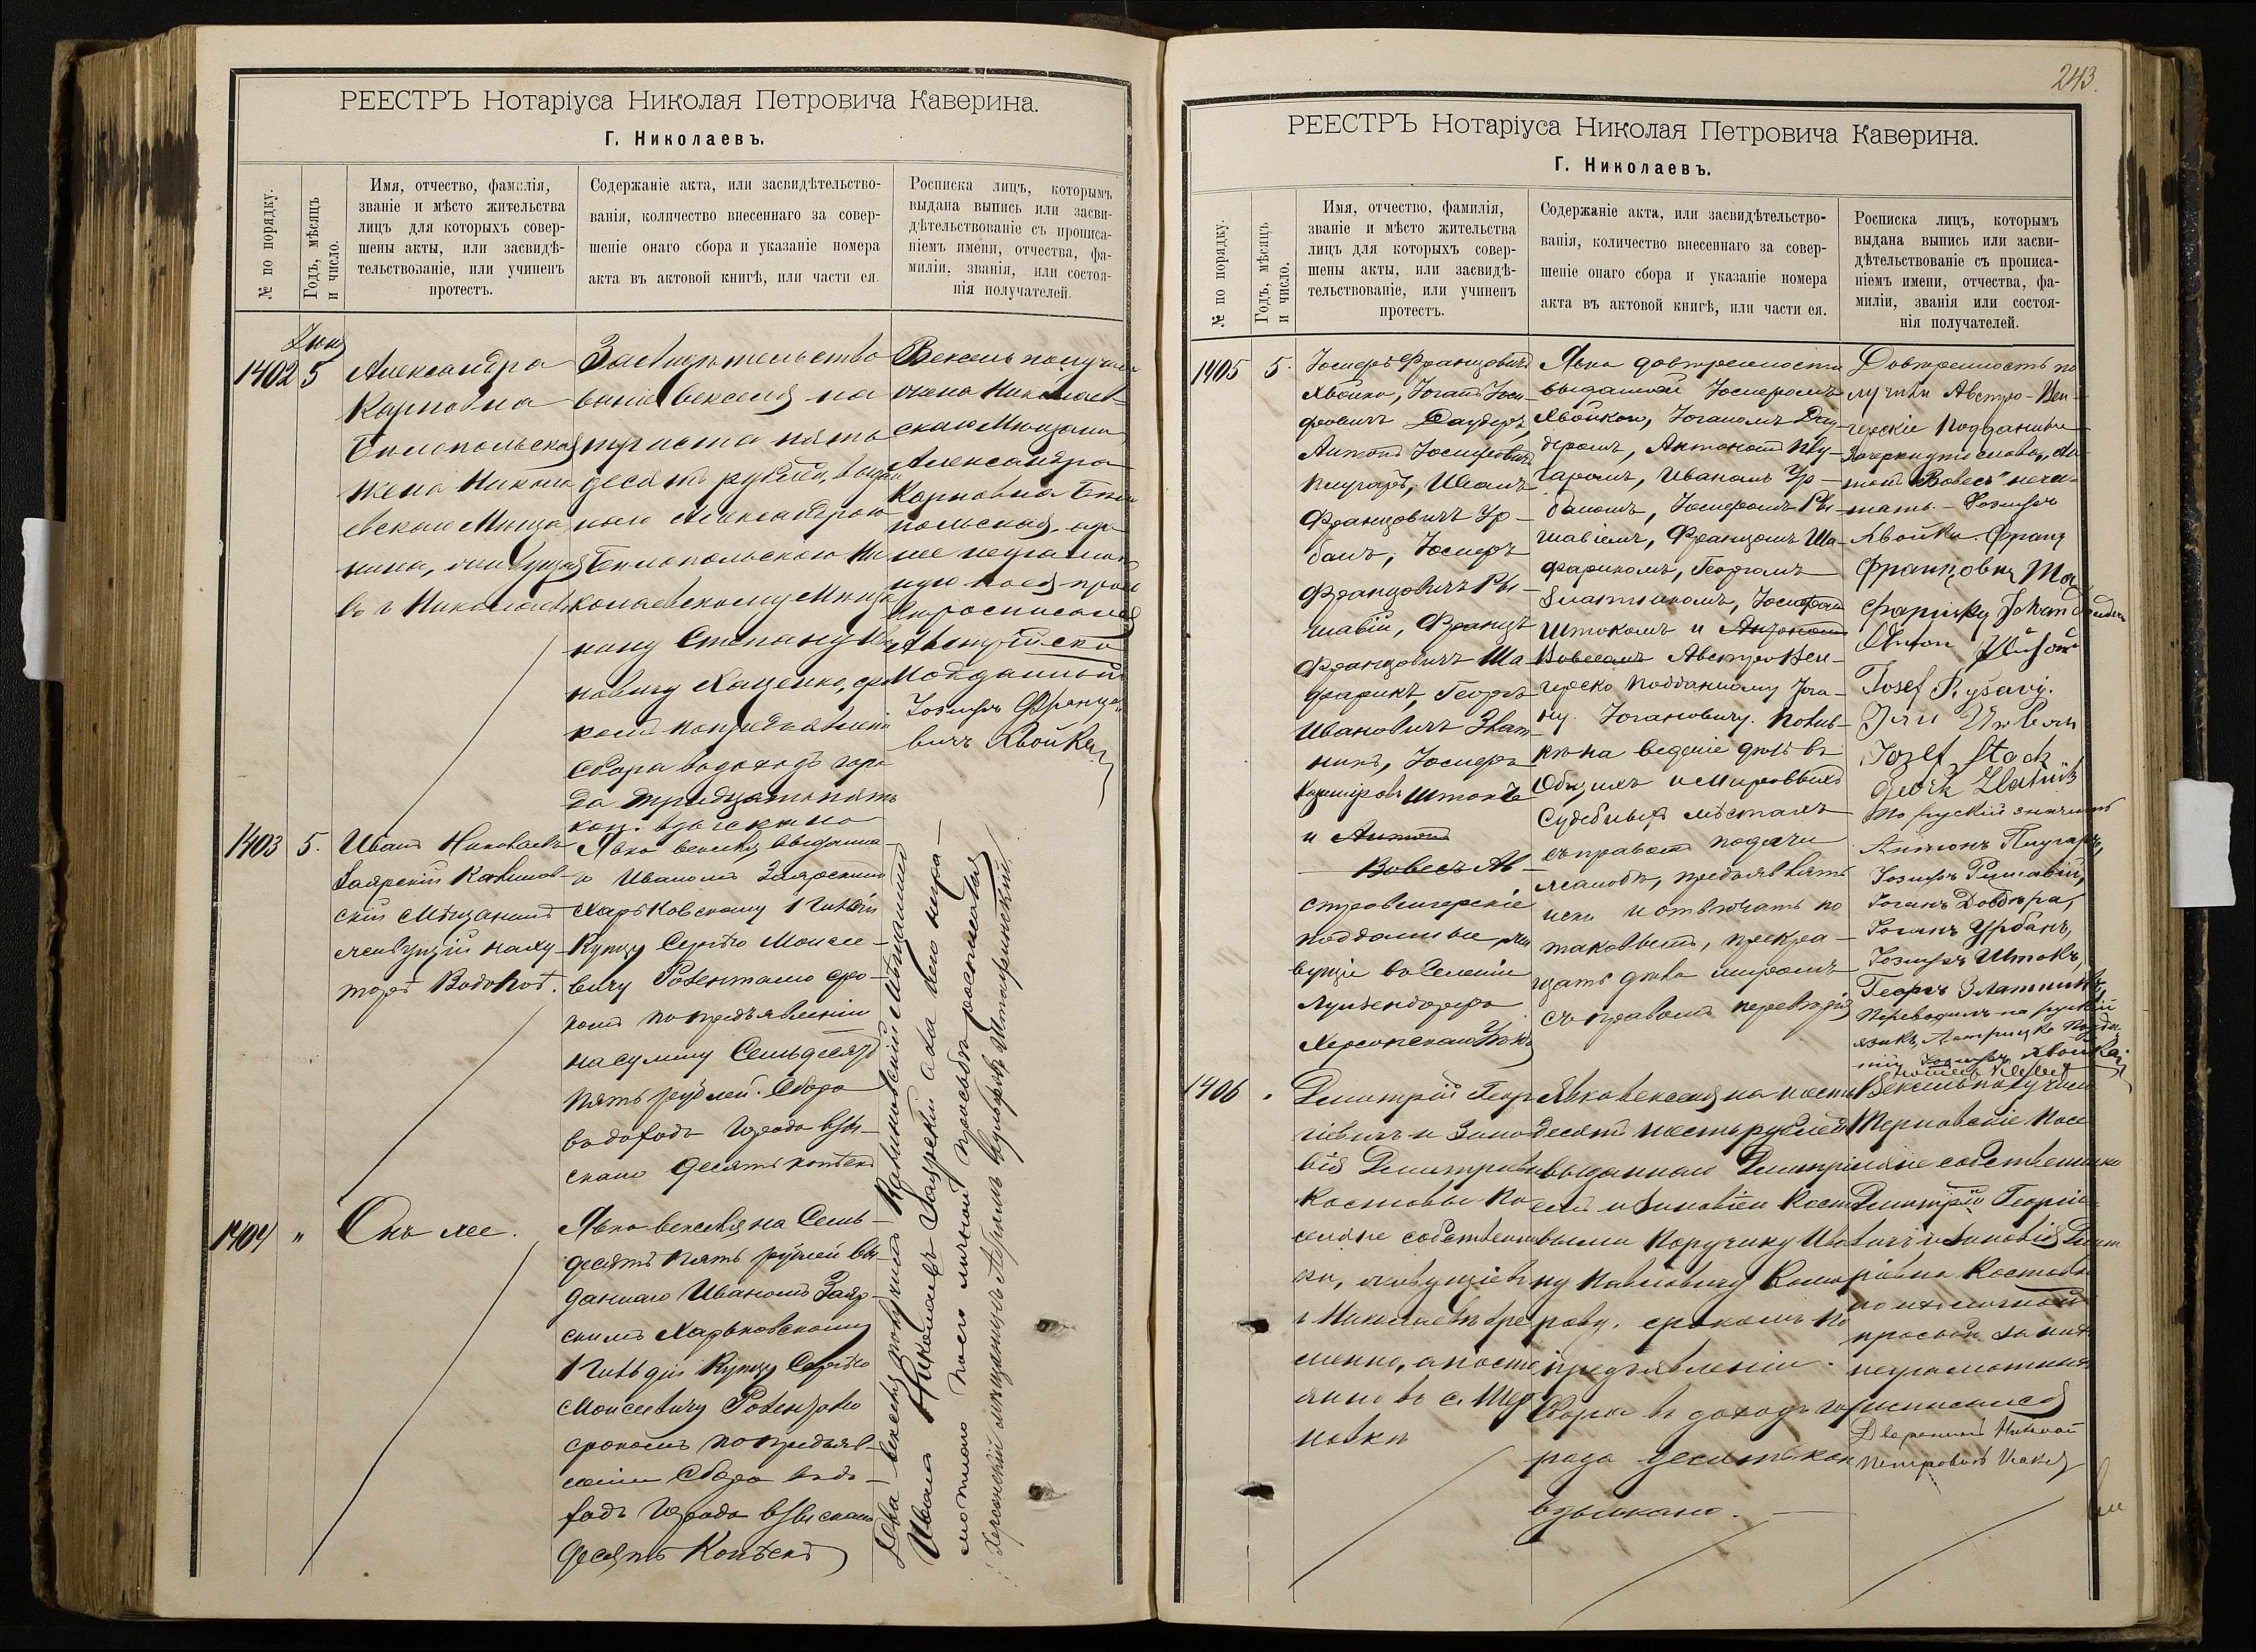 РЕЕСТРЪ Нотаріуса Николая Петровича Каверина.
Г. Николаевъ.
№ по порядку.
Годъ, мѣсяцъ
и число.
Имя, отчество, фамилія,
званіе и мѣсто жительства
лицъ для которыхъ совер-
шены акты, или засвидѣ-
тельствованіе, или учиненъ
протестъ.
Содержаніе акта, или засвидѣтельство-
ванія, количество внесеннаго за совер-
шеніе онаго сбора и указаніе номера
акта въ актовой книгѣ, или части ея.
Росписка лицъ, которымъ
выдана выпись или засви-
дѣтельствованіе съ прописа-
ніемъ имени, отчества, фа-
миліи, званія, или состоя-
нія получателей.
1402
5
Александра
Карповна
Бѣлопольская
жена Никола
евскаго Мѣща
нина, живущая
въ г Николаевѣ
Засвидѣтельство
ваніе векселя на
триста пять
десятъ рублей, выдан
наго Александрою
Бѣлопольскою Ни
колаевскому Мѣща
нину Степану
Каценко, сро
комъ по предъявленіи
Сбора въ доходъ горо
да тридцать пять
коп. взыскано
Вексель получила
жена Николаев-
скаго Мѣщанина
Александра
Карповна Бѣло
польская, а за
нее неграмот
ную по ея прось
бѣ росписался
Австрійско
Подданный
Іозифъ Францо-
вичъ Хвойка
1403
5.
Иванъ Николаевъ
Заярскій Калинов-
скій Мѣщанинъ
живущій на ху-
торѣ Водопой.
Явка векселя выданна-
го Иваномъ Заярскимъ
Харьковскому 1 Гильдіи
Купцу Сергѣю Моисее-
вичу Розенталю сро-
комъ по предъявленіи
на сумму Семьдесятъ
пять рублей. Сбора
въ доходъ города взы-
скано десять копѣекъ
1404
"
Онъ же.
Явка векселя на Семь-
десятъ пять рублей вы-
даннаго Иваномъ Заяр-
скимъ Харьковскому
1 Гильдіи Купцу Сергѣю
Моисеевичу Розенталю
срокомъ по предъяв-
леніи Сбора въ до-
ходъ города взыскано
десять Копѣекъ
Два векселя получилъ Калиновскій Мѣщанинъ
Иванъ Николаевъ Заярскій а за него негра-
мотнаго по его личной просьбѣ росписался
Херсонскій мѣщанинъ
243.
РЕЕСТРЪ Нотаріуса Николая Петровича Каверина.
Г. Николаевъ.
№ по порядку.
Годъ, мѣсяцъ
и число.
Имя, отчество, фамилія,
званіе и мѣсто жительства
лицъ для которыхъ совер-
шены акты, или засвидѣ-
тельствованіе, или учиненъ
протестъ.
Содержаніе акта, или засвидѣтельство-
ванія, количество внесеннаго за совер-
шеніе онаго сбора и указаніе номера
акта въ актовой книгѣ, или части ея.
Росписка лицъ, которымъ
выдана выпись или засви-
дѣтельствованіе съ прописа-
ніемъ имени, отчества, фа-
миліи, званія или состоя-
нія получателей.
1405
5.
Іосифъ Францовичъ
Хвойка, Іоганъ Іоси-
фовичъ Даудеръ,
Антонъ Іосифовичъ
Плугаръ, Иванъ
Францовичъ Ур-
банъ, Іосифъ
Францовичъ Ры-
шавій, Францъ
Францовичъ Ша
фарикъ, Георгъ
Ивановичъ Злат-
никъ, Іосифъ
Штокъ
и Антонъ
Вовесъ Ав-
стровенгерскіе
подданные, жи
вущіе въ Селеніи
Херсонскаго Уѣзда
Явка довѣренности
выданной Іосифомъ
Хвойкою, Іоганомъ Дау-
деромъ, Антономъ Плу-
гаромъ, Иваномъ Ур-
баномъ, Іосифомъ Ры-
шавіемъ, Францомъ Ша-
фарикомъ, Георгомъ
Златникомъ, Іосифомъ
Штокомъ и Антономъ
Вовесомъ Австро Вен-
герско подданному Іога-
ну Іогановичу
на веденіе дѣлъ въ
Общихъ и Мировыхъ
Судебныхъ мѣстахъ
съ правомъ подачи
жалобъ, предъявлять
иски и отвѣчать по
таковымъ, прекра-
щать дѣла миромъ
съ правомъ передовѣрія
Довѣренность по
лучили Австро-Вен-
герскіе Подданные
Зачеркнутые слова „Ан-
тонъ Вовесъ" нечи-
тать. - Іозифъ
Хвойка. Франц
Францовиц Ша
фарикъ Johan
Anton
Josef Ryšavý.
Jan Urban
Jozef Stock
Georg Zlatnik
по русскій значитъ
Антонъ Плугаръ,
Іозифъ Ришавій,
Іоганъ
Іоганъ Урбанъ,
Іозифъ Штокъ,
Георгъ Златникъ,
Переводилъ на рускій
языкъ
Іозифъ Хвойка
1406
"
Дмитрій Геор
гіевичъ и Зино
вія Дмитріевна
Костовы По
селяне собственни
ки, живущіе въ
г Николаевѣ вре
менно, а посто
янно въ с. Тер
новки
Явка векселя на шесть
десятъ шесть рублей
выданнаго Дмитрі
емъ и Зиновіею Косто
выми Поручику Ива
ну Павловичу Кома
рову, срокомъ по
предъявленіи.
Сбора въ доходъ го
рода десять коп
взыскано.
Вексель получили
Терновскіе Посе
ляне собственники
Дмитрій Георгіе
вичъ и Зиновія Дмит
ріевна Костовы
по ихъ личной
просьбѣ за нихъ
неграмотныхъ
росписался
Дворянинъ Николай
Петровичъ